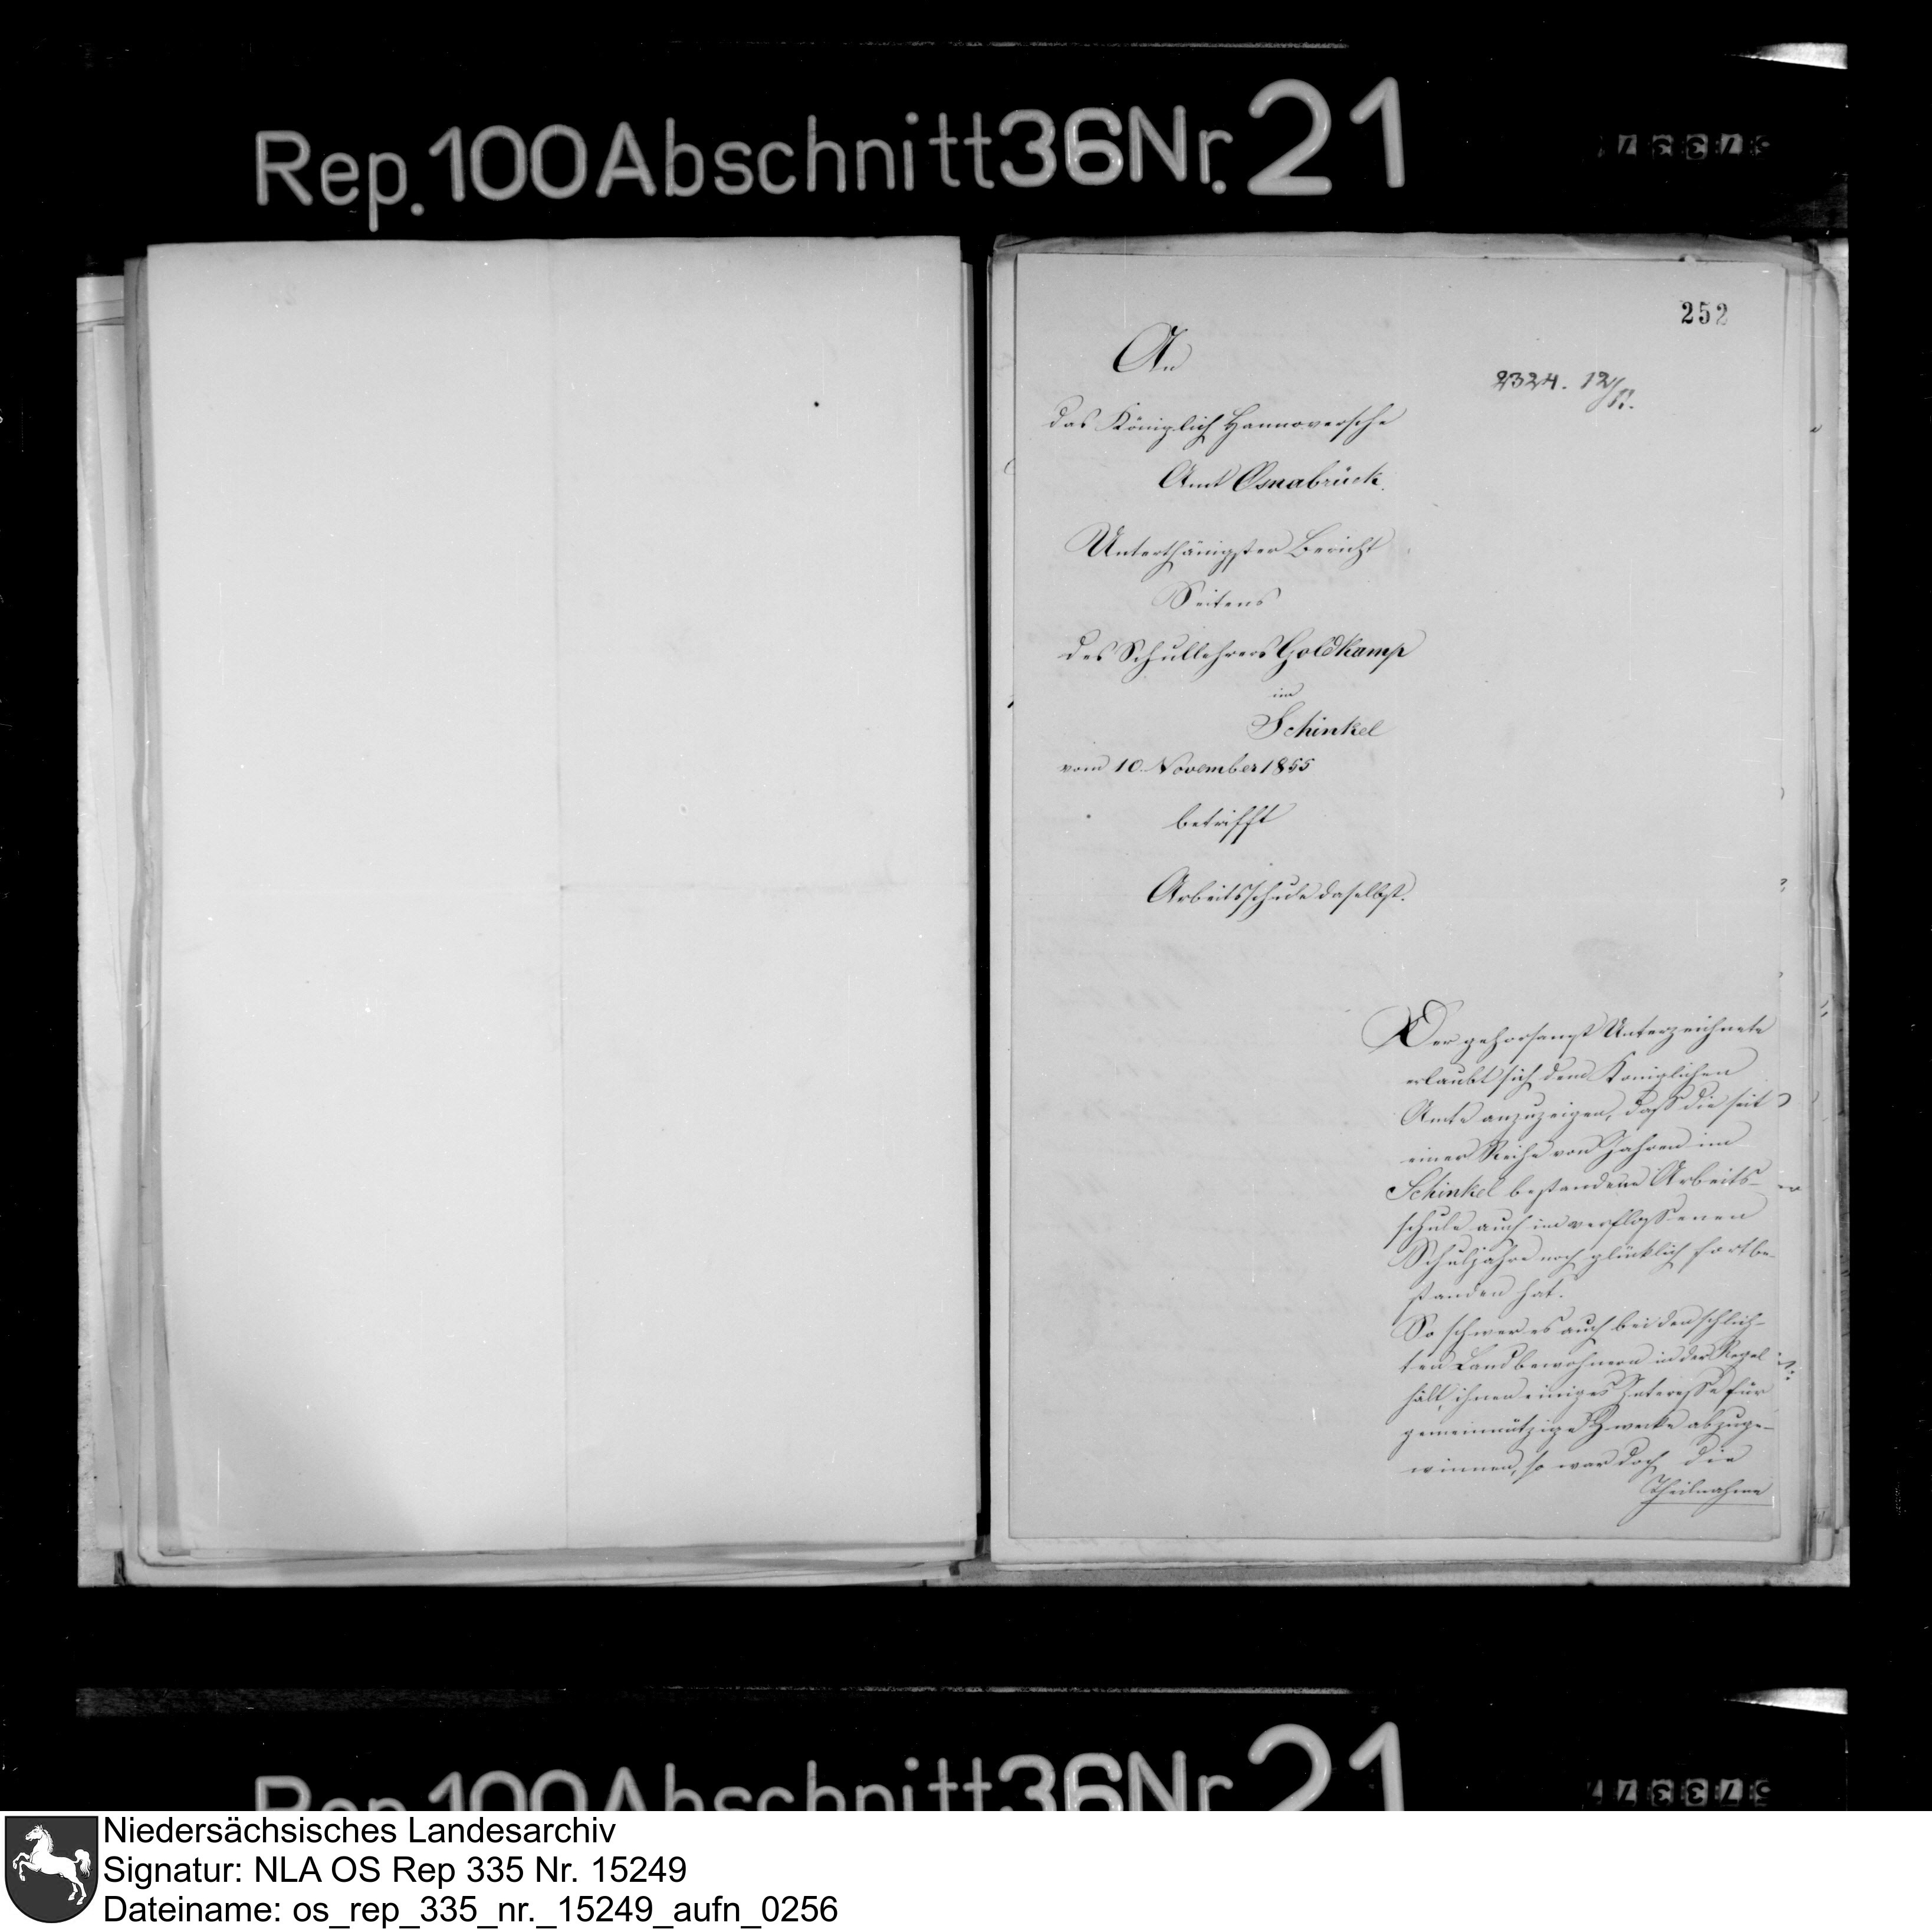 Rep. 100 Abschnitt 36 Nr. 21
252
An
2324. 12/11.
das Königlich Hannoversche
Amt Osnabrück.
Unterthänigster Bericht
Seitens
des Schullehrers Goldkamp
im
Schinkel
vom 10. November 1855
betrifft
Arbeitsschule daselbst.
Der gehorsamst Unterzeichnete
erlaubt sich dem Königlichen
Amte anzuzeigen, daß die seit
einer Reihe von Jahren im
Schinkel bestandene Arbeits-
schule auch im verflossenen
Schuljahre noch glücklich fortbe-
standen hat.
So schwer es auch bei den schlich-
ten Landbewohnern in der Regel
hält, ihnen einiges Interesse für
gemeinnützige Zwecke abzuge-
winnen, so war doch die
Theilnahme
Rep. 100 Abschnitt 36 Nr. 21
Niedersächsisches Landesarchiv
Signatur: NLA OS Rep 335 Nr. 15249
Dateiname: os_rep_335_nr._15249_aufn_0256